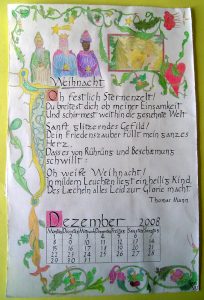 Weihnacht
Oh festlich Sternenzelt!
Du breitest dich ob meiner Einsamkeit
Und schirmest weithin die besehnte Welt
Sanft glitzerndes Gefild!
Dein Friedenszauber füllt mein ganzes
Herz,
Dass es von Rührung und Beschämung
schwillt:
Oh weiße Weihnacht!
In mildem Leuchten liegt ein heilig Kind,
Des Lächeln alles Leid zur Glorie macht
Thomas Mann
Dezember 2008
1 2 3 4 5 6 7
8 9 10 11 12 13 14
15 16 17 18 19 20 21
22 23 24 25 26 27 28
29 30 31